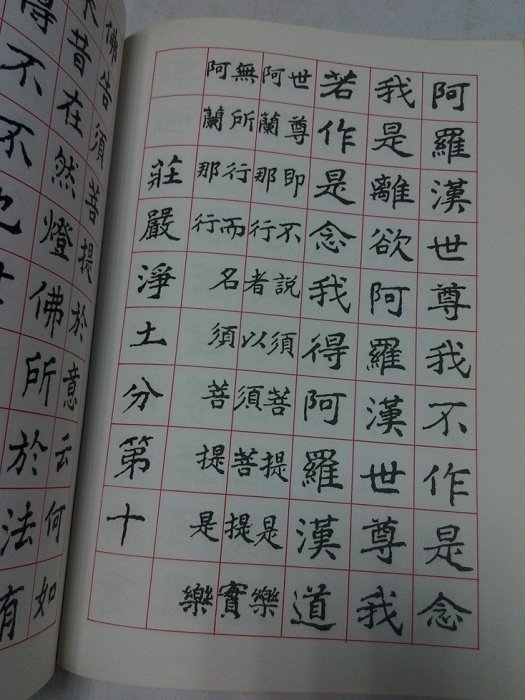 阿羅漢世尊我不作是念
我是離欲阿羅漢世尊我
若作是念我得阿羅漢道
世尊即不說須菩提是樂
阿蘭那行者以須菩提實
無所行而名須菩提是樂
阿蘭那行
莊嚴淨土分第十
佛告須菩提於意云何如
來昔在然燈佛所於法有
得不不也